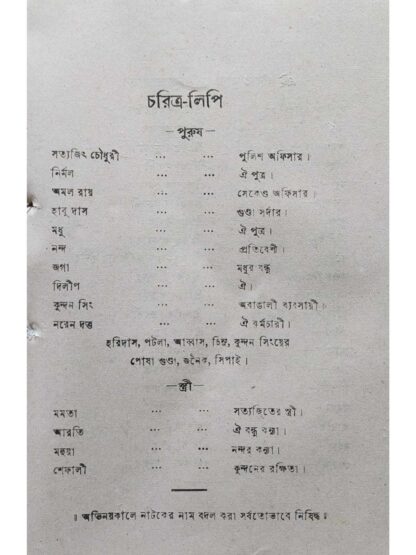 চরিত্র-লিপি
—পুরুষ—
সত্যজিৎ চৌধুরী ... ... পুলিশ অফিসার।
নির্মল ... ... ঐ পুত্র।
অমল রায় ... ... সেকেণ্ড অফিসার।
হাবু দাস ... ... গুণ্ডা সর্দার।
মধু ... ... ঐ পুত্র।
নন্দ ... ... প্রতিবেশী।
জগা ... ... মধুর বন্ধু
দিলীপ ... ... ঐ।
কুন্দন সিং ... ... অবাঙালী ব্যবসায়ী।
নরেন দত্ত ... ... ঐ কর্মচারী।
হরিদাস, পটলা, আব্বাস, চিন্তু, কুন্দন সিংয়ের
পোষা গুণ্ডা, জনৈক, সিপাই।
—স্ত্রী—
মমতা ... ... সত্যজিতের স্ত্রী।
আরতি ... ... ঐ বন্ধু কন্যা।
মহুয়া ... ... নন্দর কন্যা।
শেফালী ... ... কুন্দনের রক্ষিতা।
॥ অভিনয়কালে নাটকের নাম বদল করা সর্বতোভাবে নিষিদ্ধ॥